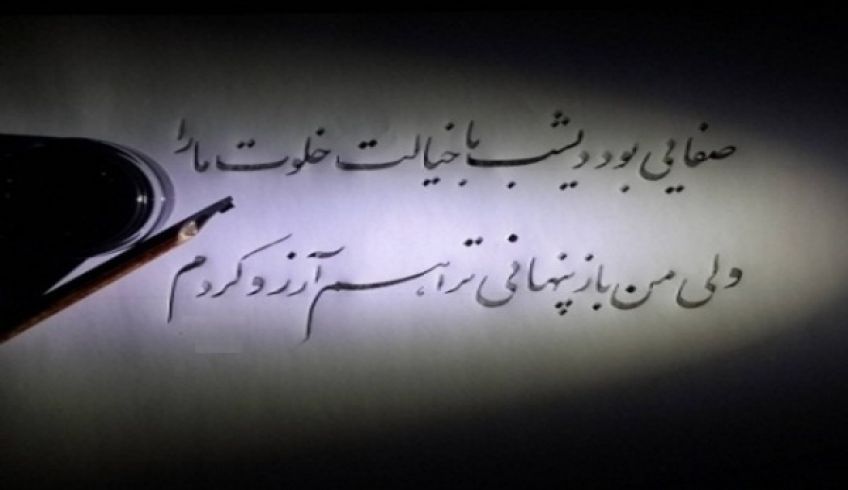 صفایی بود دیشب با خیالت خلوت ما را
ولی من باز پنهانی ترا هم آرزو کردم